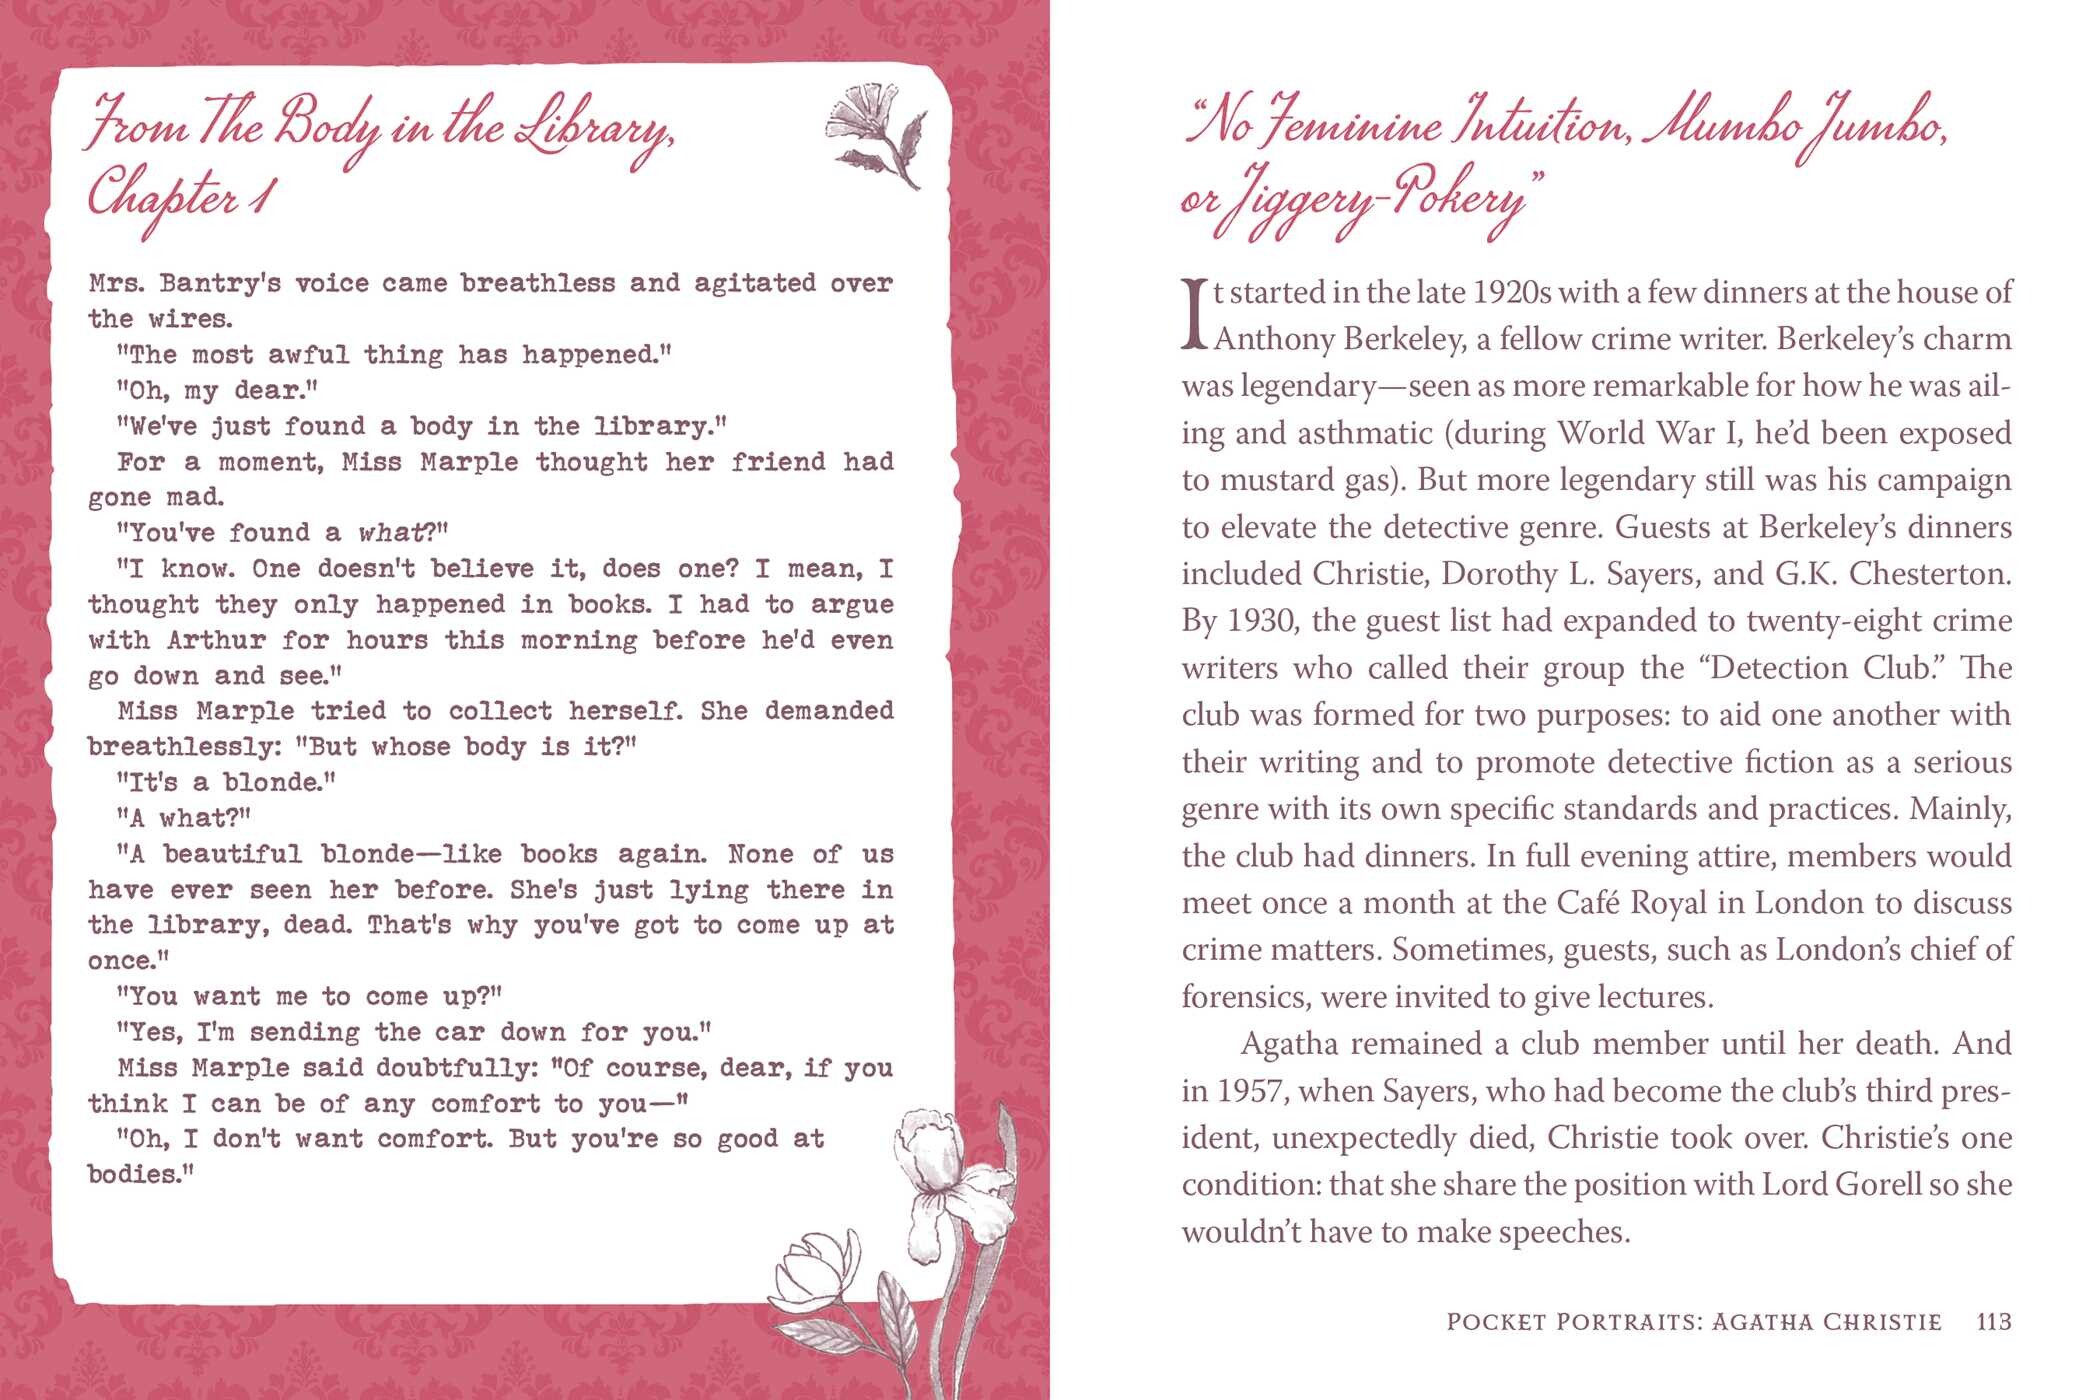 From The Body in the Library,
Chapter 1
Mrs. Bantry's voice came breathless and agitated over
the wires.
"The most awful thing has happened."
"Oh, my dear."
"We've just found a body in the library."
For a moment, Miss Marple thought her friend had
gone mad.
"You've found a what?"
"I know. One doesn't believe it, does one? I mean, I
thought they only happened in books. I had to argue
with Arthur for hours this morning before he'd even
go down and see."
Miss Marple tried to collect herself. She demanded
breathlessly: "But whose body is it?"
"It's a blonde."
"A what?"
"A beautiful blonde—like books again. None of us
have ever seen her before. She's just lying there in
the library, dead. That's why you've got to come up at
once."
"You want me to come up?"
"Yes, I'm sending the car down for you."
Miss Marple said doubtfully: "Of course, dear, if you
think I can be of any comfort to you—"
"Oh, I don't want comfort. But you're so good at
bodies."
“No Feminine Intuition, Mumbo Jumbo,
or Jiggery-Pokery”
It started in the late 1920s with a few dinners at the house of
Anthony Berkeley, a fellow crime writer. Berkeley’s charm
was legendary—seen as more remarkable for how he was ail-
ing and asthmatic (during World War I, he’d been exposed
to mustard gas). But more legendary still was his campaign
to elevate the detective genre. Guests at Berkeley’s dinners
included Christie, Dorothy L. Sayers, and G.K. Chesterton.
By 1930, the guest list had expanded to twenty-eight crime
writers who called their group the “Detection Club.” The
club was formed for two purposes: to aid one another with
their writing and to promote detective fiction as a serious
genre with its own specific standards and practices. Mainly,
the club had dinners. In full evening attire, members would
meet once a month at the Café Royal in London to discuss
crime matters. Sometimes, guests, such as London’s chief of
forensics, were invited to give lectures.
Agatha remained a club member until her death. And
in 1957, when Sayers, who had become the club’s third pres-
ident, unexpectedly died, Christie took over. Christie’s one
condition: that she share the position with Lord Gorell so she
wouldn’t have to make speeches.
Pocket Portraits: Agatha Christie 113